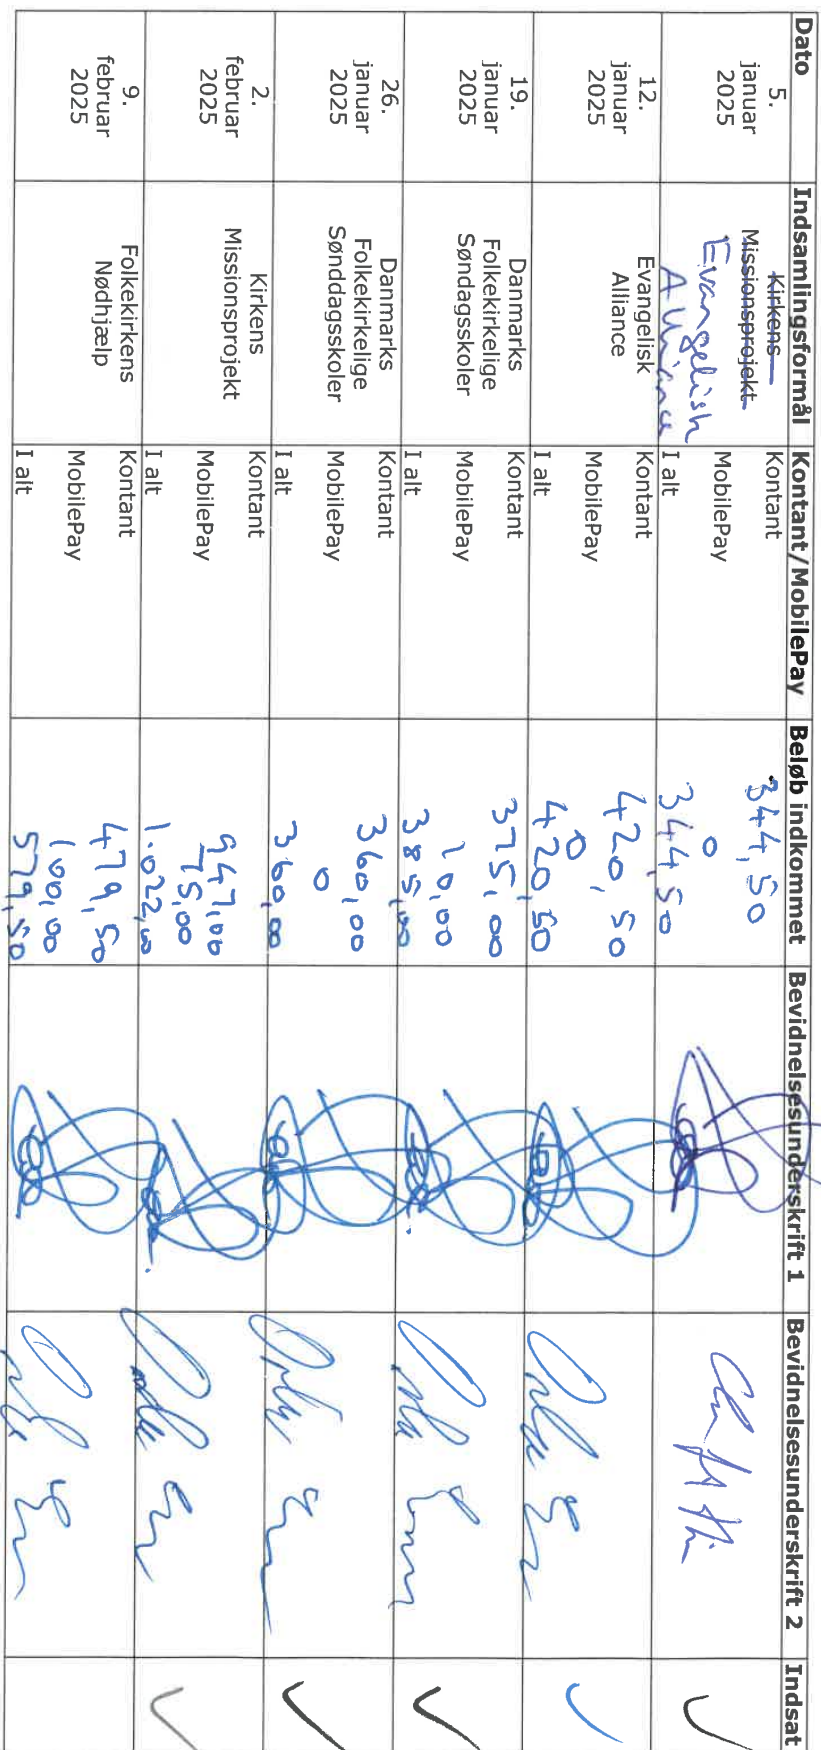 Dato Indsamlingsformål Kontant/MobilePay Beløb indkommet Bevidnelsesunderskrift 1 Bevidnelsesunderskrift 2 Indsat
5.
januar
2025
Kirkens
Missionsprojekt
Evangelish
Alliance
Kontant 344,50
MobilePay 0
I alt 344,50
12.
januar
2025
Evangelisk
Alliance
Kontant 420,50
MobilePay 0
I alt 420,50
19.
januar
2025
Danmarks
Folkekirkelige
Søndagsskoler
Kontant 375,00
MobilePay 10,00
I alt 385,00
26.
januar
2025
Danmarks
Folkekirkelige
Sønddagsskoler
Kontant 360,00
MobilePay 0
I alt 360,00
2.
februar
2025
Kirkens
Missionsprojekt
Kontant 947,00
MobilePay 75,00
I alt 1.022,00
9.
februar
2025
Folkekirkens
Nødhjælp
Kontant 479,50
MobilePay 100,00
I alt 579,50